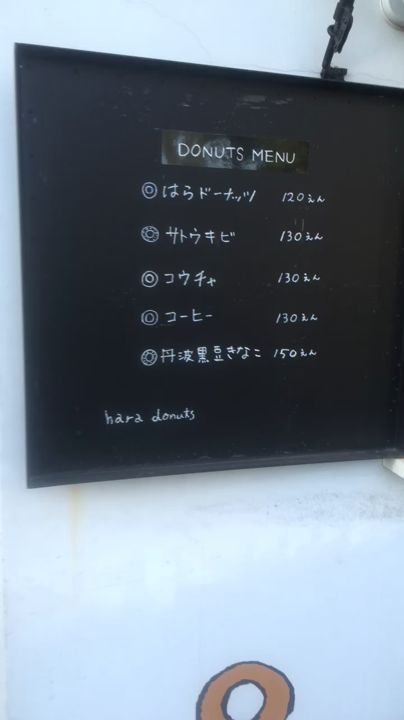 DONUTS MENU
◎はらドーナッツ 120えん
◎サトウキビ 130えん
◎コウチャ 130えん
◎コーヒー 130えん
◎丹波黒豆きなこ 150えん
hara donuts